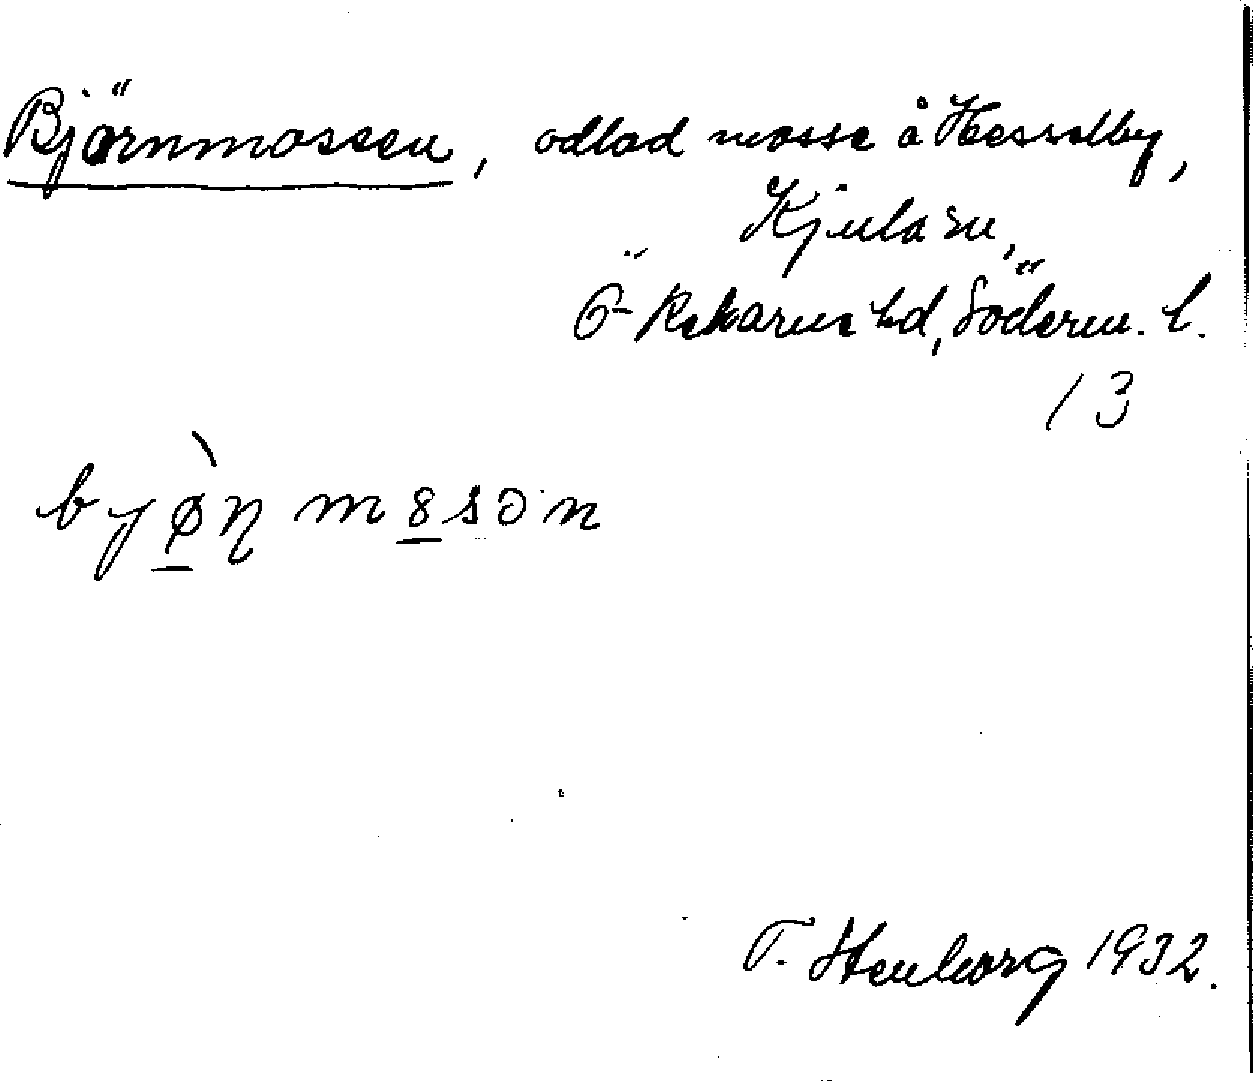 Björnmossen, odlad mosse å Hesselby,
Kjula sn,
Ö-Rekarne hd, Söderm. l.
13
bjø̀ɳ m8sɔn
T. Stenborg 1932.